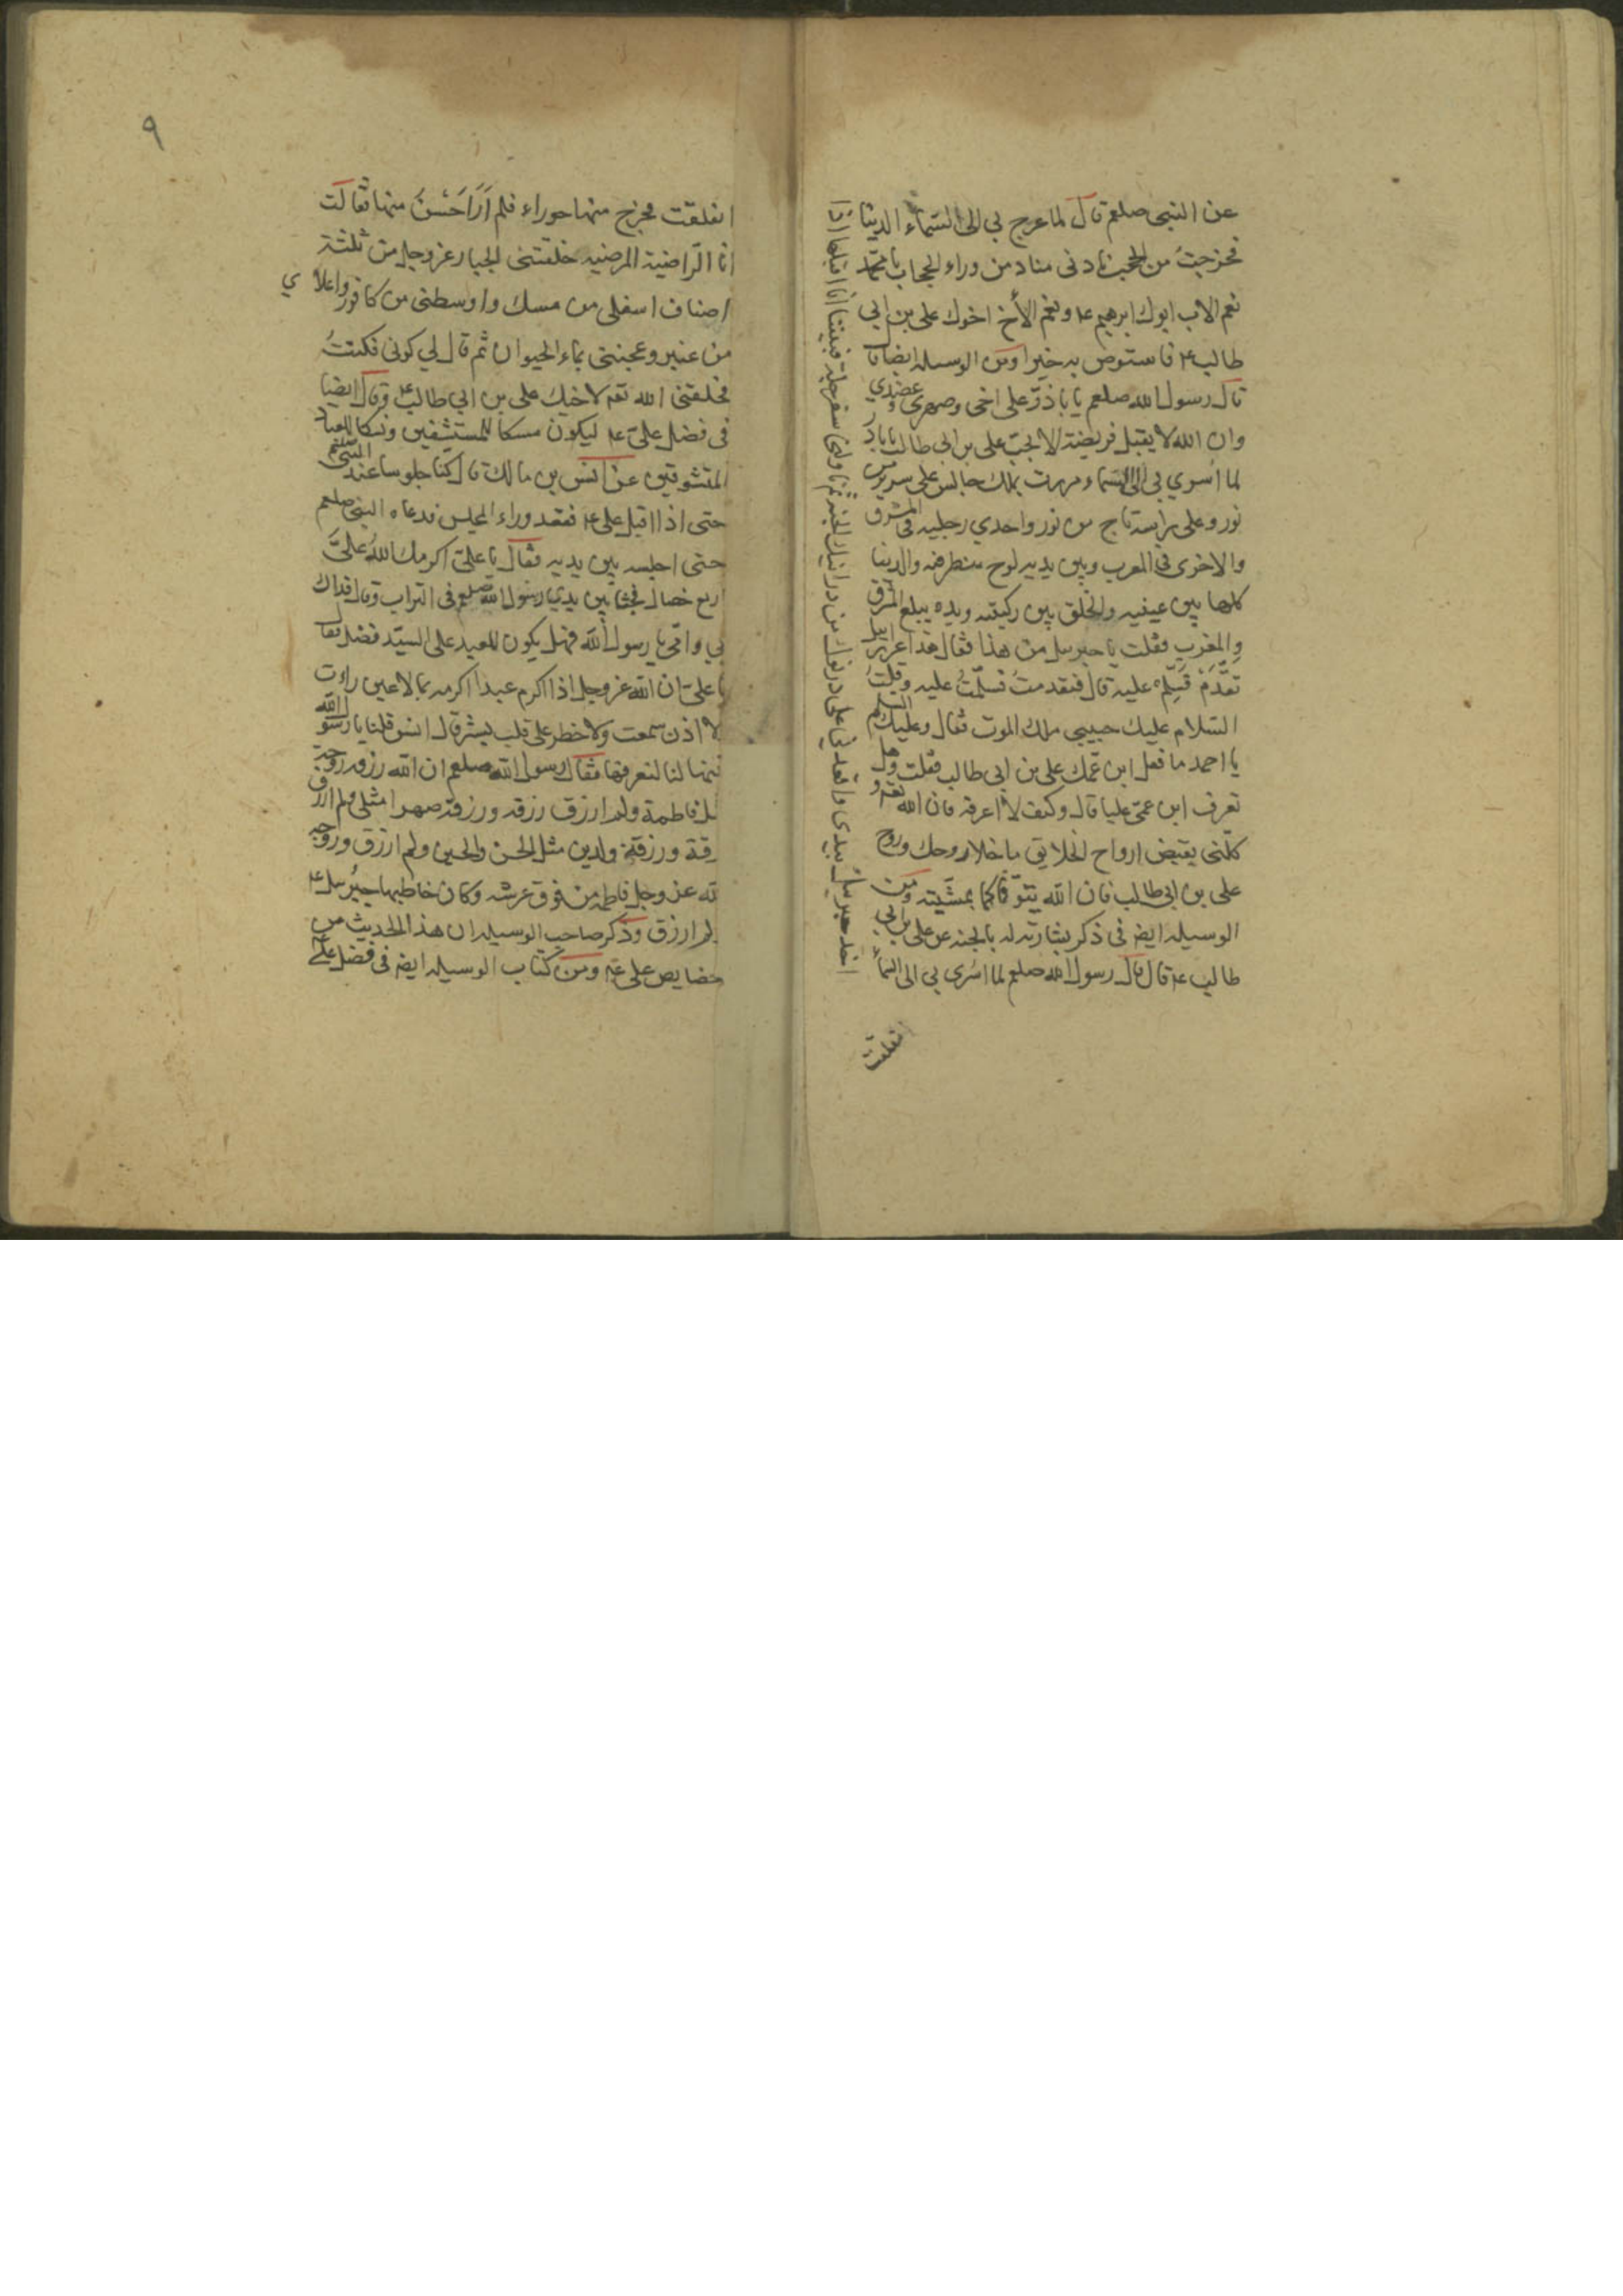 عن النبى صلعم قال لما عرج بي الى السماء الدنيا
فخرجتُ من الحجب نادنى مناد من وراء الحجاب يا محمد
نعم الاب ابوك ابرهيم ع‍ ونعم الأخ اخوك على بن ابي
طالب ع‍ فاستوص به خيرا ومن الوسيله ايضا قا
قال رسول الله صلعم يا باذرّ على اخى وصهرى وعضدي
وان الله لا يقبل فريضة الا بحب على بن ابى طالب يا باذر
لما اسري بي الى السماء مررت بملك جالس على سرير من
نور وعلى راسه تاج من نور واحدي رجليه فى المشرق
والاخرى فى المغرب وبين يديه لوح ينظر فيه والدنيا
كلها بين عينيه والخلق بين ركبتيه ويده يبلغ المشرق
والمغرب فقلت يا جبرسل من هذا فقال هذا عزرايل
تقدّم فسلّم عليه قال فتقدمتُ فسلّمتُ عليه وقلتُ
السلام عليك حبيبى ملك الموت فقال وعليك السلم
يا احمد ما فعل ابن عمّك على بن ابى طالب فقلت وهل
تعرف ابن عمّى عليا قال وكيف لا اعرفه فان الله تعم و
كلّنى بقبض ارواح الخلايق ما خلا روحك وروح
على بن ابى طالب فان الله يتوفّاكما بمشّيته ومن
الوسيله ايضا فى ذكر بشارته له بالجنه عن على بن ابي
طالب ع‍ قال قال رسول الله صلعم لما اسرى بي الى السماء
اخذ جبرسل بيدى واقعدنى على درنوك من درانيك الجنة ثم ناولنى سفرجلة فبينا انا اقبلها اذا
انفلقت
انفلقت فخرج منها حوراء فلم اَرَ اَحْسَنَ منها فقالت
انا الرّاضية المرضيه خلقتنى الجبار عز وجل من ثلثة
اصناف اسفلى من مسك واوسطنى من كافور واعلاي
من عنبر وعجنتى بماء الحيوان ثم قال لي كونى فكنتُ
فخلقنى الله تعم لاخيك على بن ابي طالب ع‍ وقال ايضا
فى فضل علىّ ع‍ ليكون مسكا للمستشفين ونسكا للعباد
المتشوقين عن انس بن مالك قال كنّا جلوسا عند النبى صلعم
حتى اذا اقبل على ع‍ فقعد وراء المجلس فدعاه النبى صلعم
حتى اجلسه بين يديه فقال يا علىّ اكرمك الله علىَّ
اربع خصال فجثا بين يدي رسول الله صلعم فى التراب وقال فداك
بي وامّى يا رسول الله فهل يكون للعبد على السيّد فضل فقال
يا علىّ ان الله عز وجل اذا اكرم عبدا اكرمه بما لا عين راءت
لا اذن سمعت ولا خطر على قلب بشر قال انس قلنا يا رسول الله
بينها لنا لنعرفها فقال رسول الله صلعم ان الله رزقه زوجة
ثل فاطمة ولم ارزق رزقه ورزقه صهرا مثلى ولم ارزق
رقة ورزقه ولدين مثل الحسن والحسين ولم ارزق وزوجه
لله عز وجل فاطمه من فوق عرشه وكان خاطبها جبُرسل ع‍
لم ارزق وذكر صاحب الوسيله ان هذا الحديث من
خصايص على ع‍ ومن كتاب الوسيله ايضا فى فضل على
٩